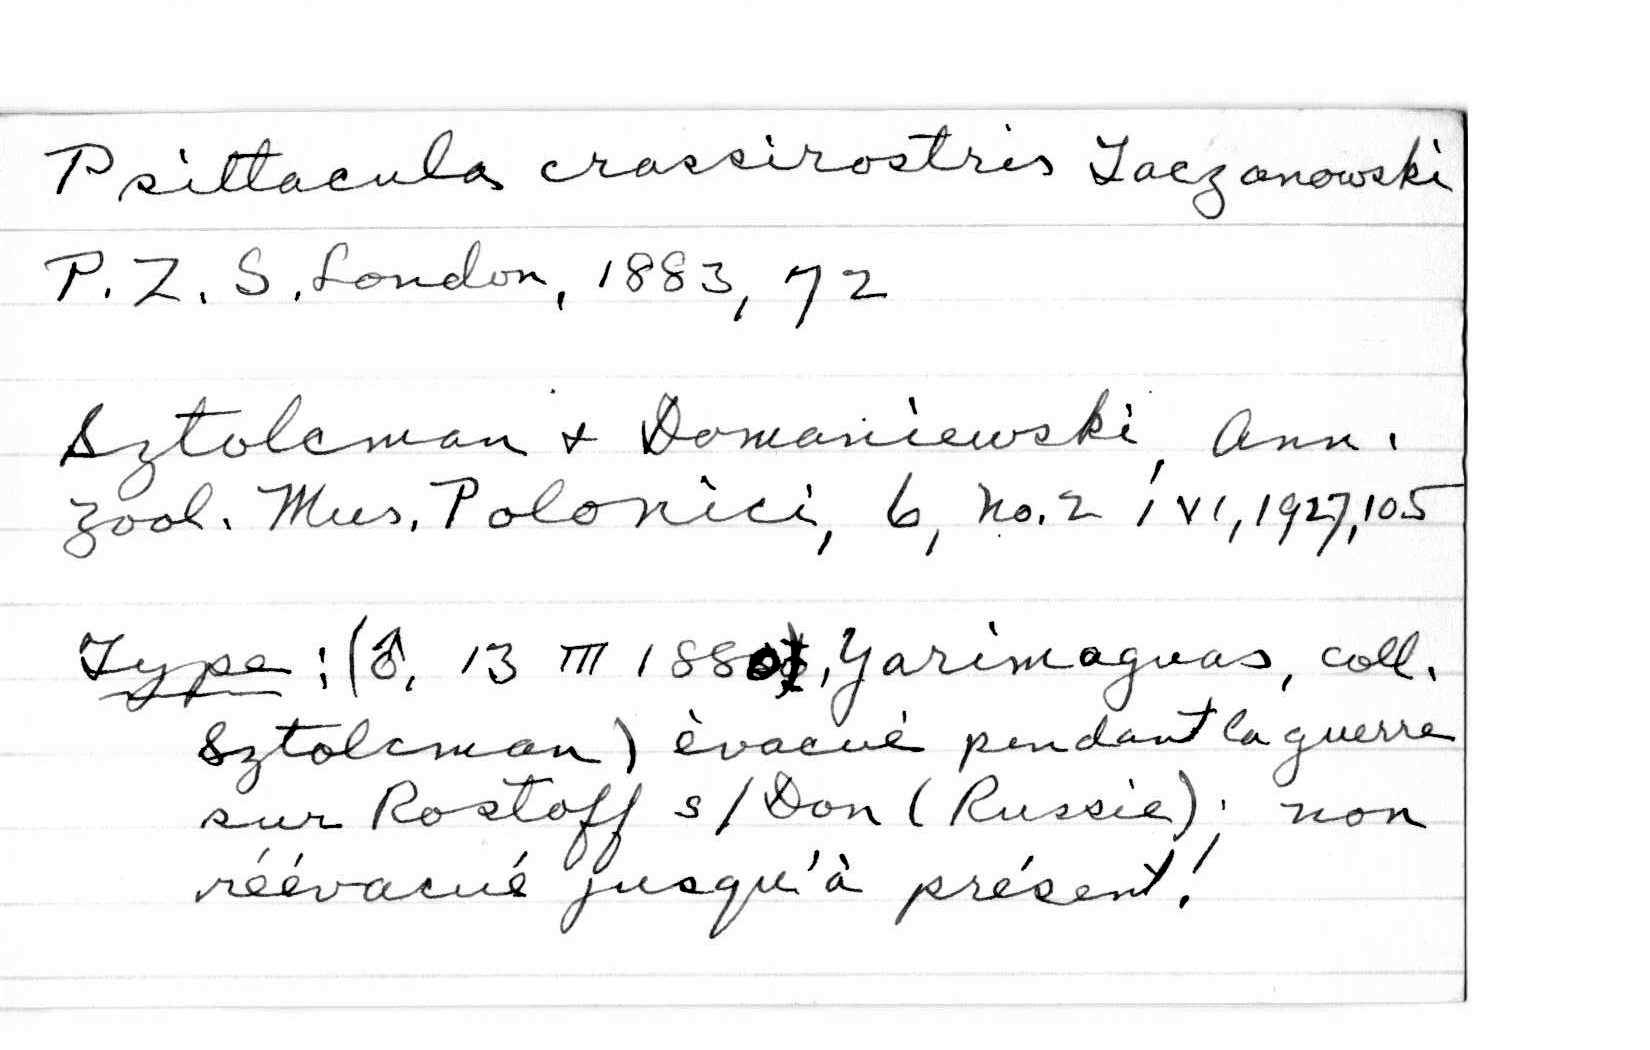 Psittacula crassirostris Taczanowski
P. Z. S. London, 1883, 72
Sztolcman + Domaniewski, Ann.
Zool. Mus. Polonici, 6, no. 2 1 VI, 1927, 105
Type : (♂, 13 III 1880, Yarimaguas, coll.
Sztolcman) èvacué pendant la guerre
sur Rostoff s/Don (Russie); non
réévacué jusqu'à présent!